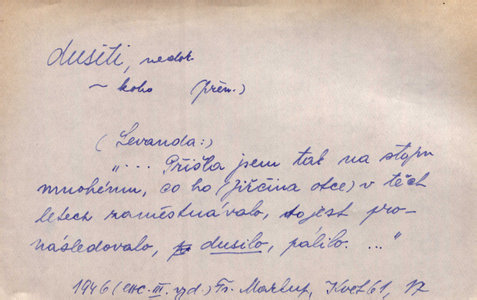 dusiti, nedok.
~ koho (přen.)
(Levanda:)
"... Přišla jsem tak na stopu
mnohému, co ho (Jiřčina otce) v těch
letech zaměstnávalo, to jest pro-
následovalo, dusilo, pálilo. ..."
1946 ( III. vyd.) Fr. 61, 17